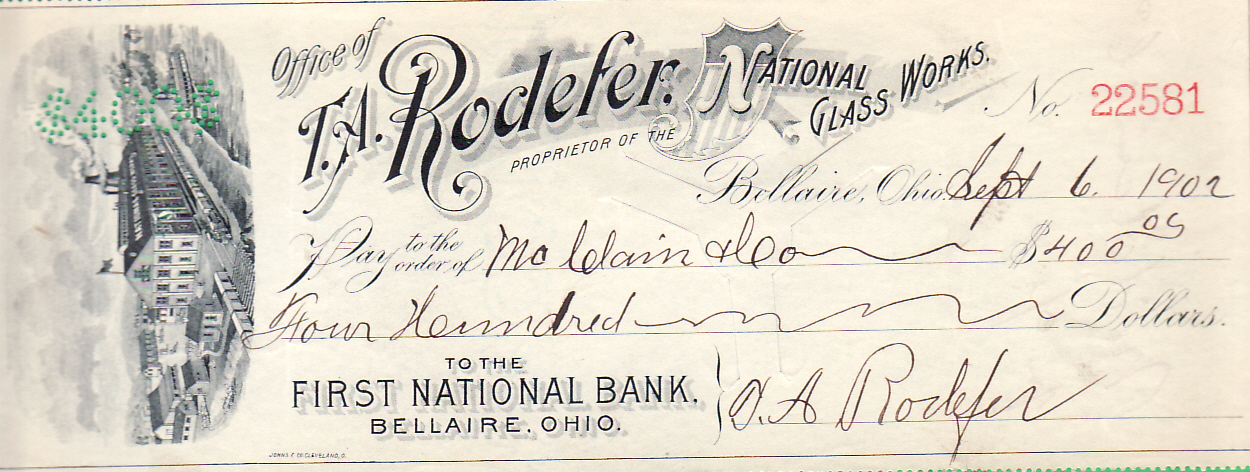 Office of
T.A. Rodefer.
PROPRIETOR OF THE
NATIONAL
GLASS WORKS.
No. 22581
Bellaire, Ohio, Sept 6. 1902
Pay to the order of McClain & Co $400 00
Four Hundred Dollars.
TO THE
FIRST NATIONAL BANK.
BELLAIRE, OHIO.
T. A Rodefer
JOHNS & CO CLEVELAND, O.